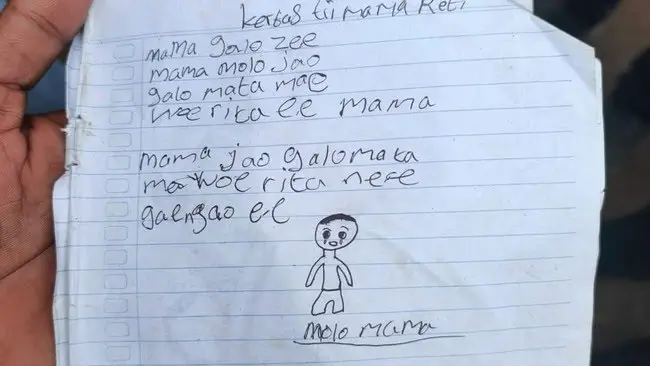 kertas tii mama Reti
mama galo zee
mama molo jao
galo mata mae
woe rita e.e mama
mama jao galo mata
mae woe rita nee
gaengao e.e
molo mama